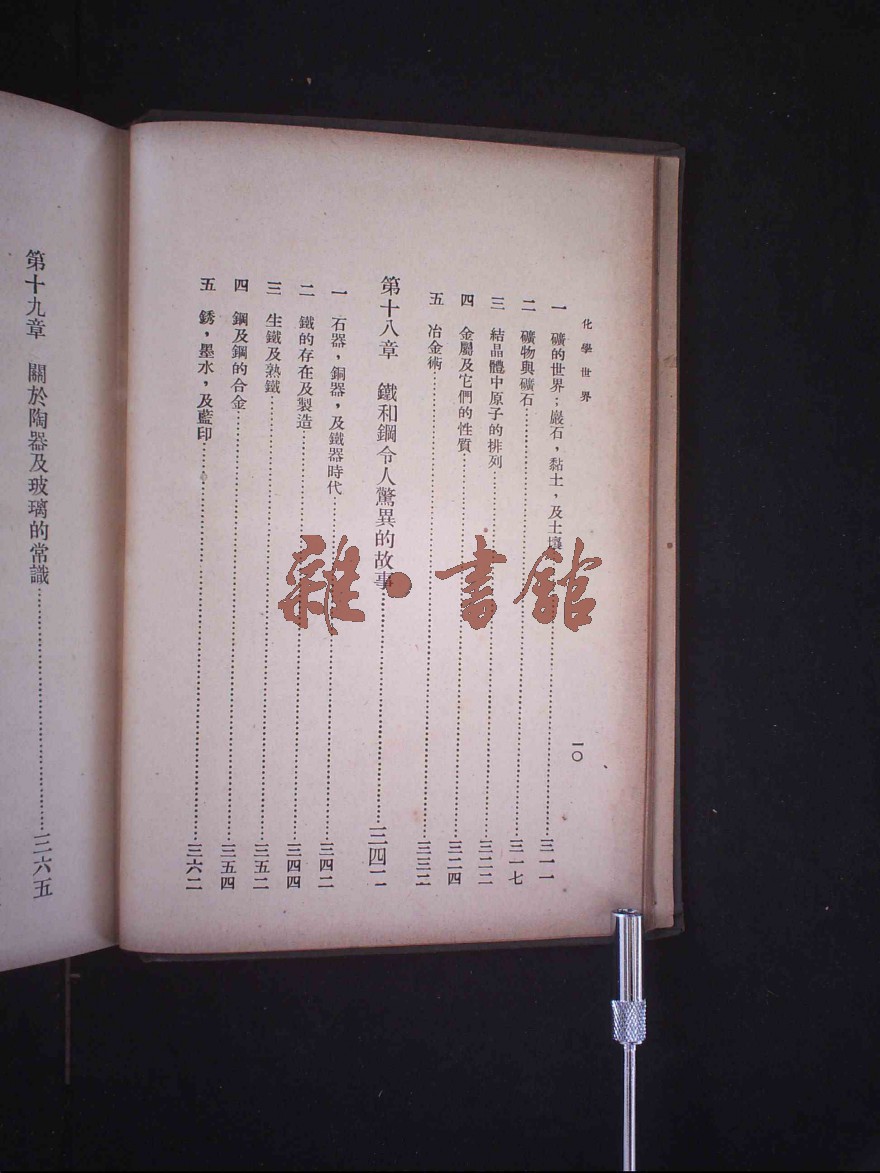 化學世界
一〇
一 礦的世界；巖石，黏土，及土壤……三一一
二 礦物與礦石……三一七
三 結晶體中原子的排列……三二二
四 金屬及它們的性質……三二四
五 冶金術……三三二
第十八章 鐵和鋼令人驚異的故事……三四二
一 石器，銅器，及鐵器時代……三四二
二 鐵的存在及製造……三四四
三 生鐵及熟鐵……三五二
四 鋼及鋼的合金……三五四
五 銹，墨水，及藍印……三六二
第十九章 關於陶器及玻璃的常識……三六五
雜·書館